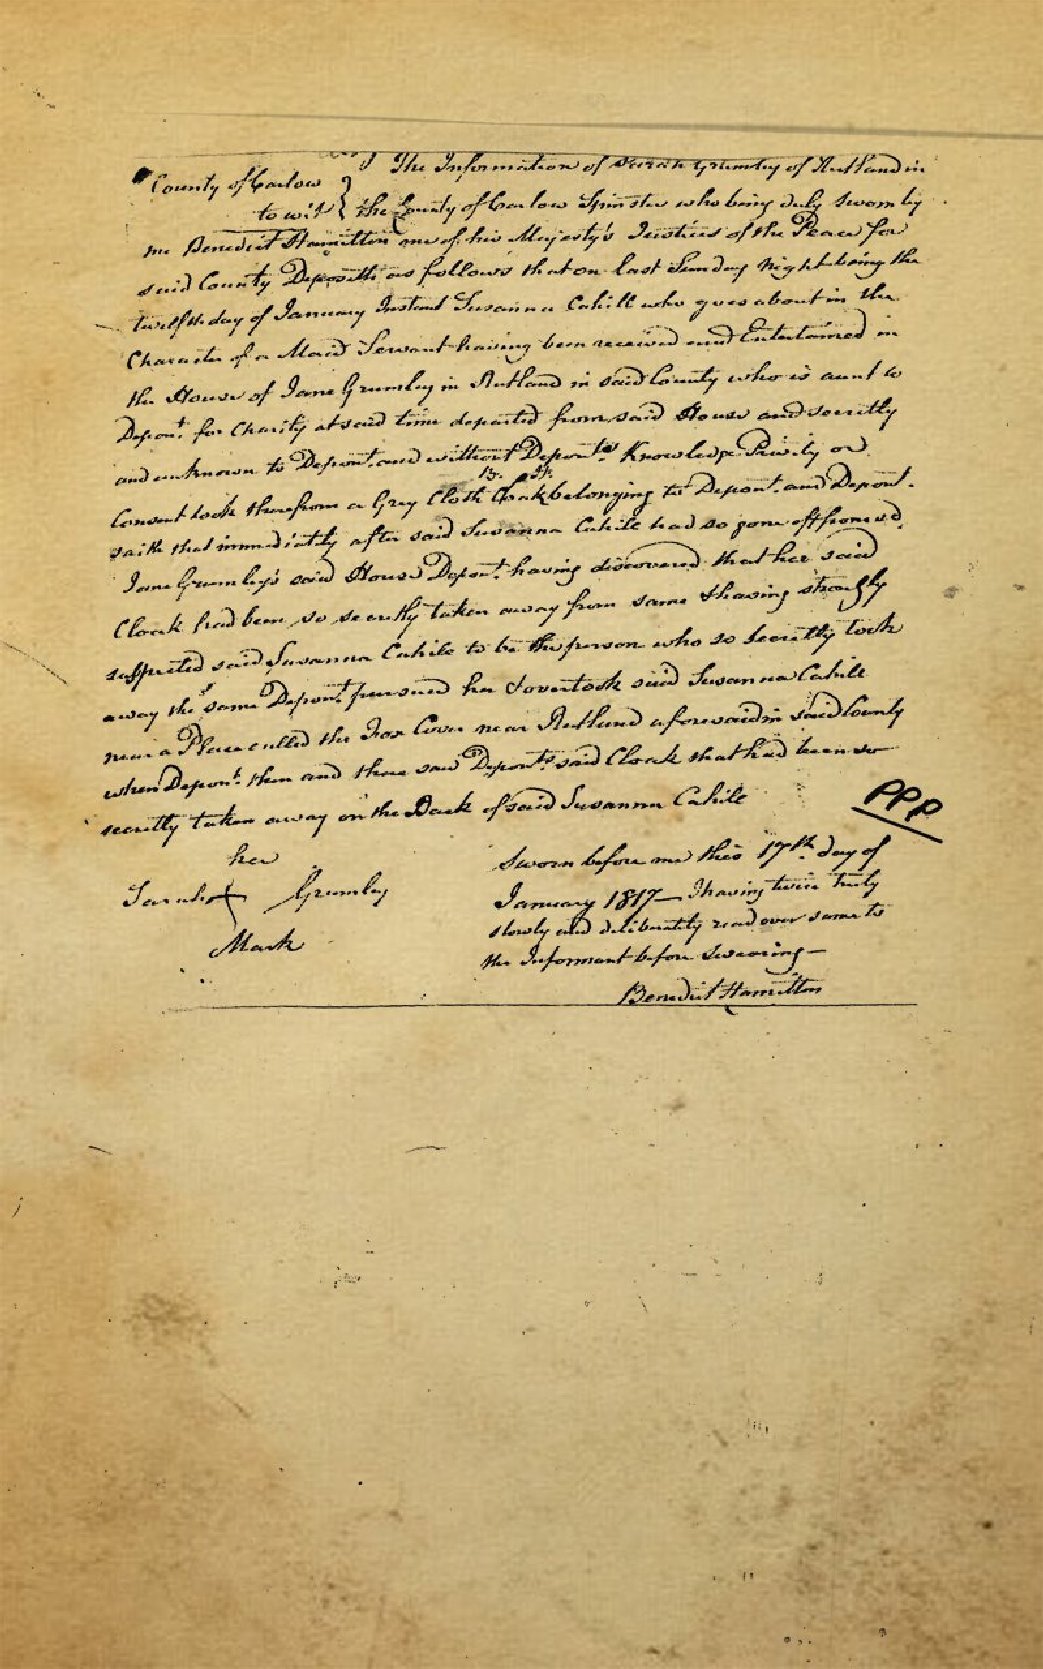 The Information of Sarah Grumley of Rutland in
County of Carlow
to wit } the County of Carlow Spinster who being duly sworn by
me Benedict Hamilton one of his Majesty's Justices of the Peace for
said County Deposeth as follows that on last Sunday Night being the
twelfth day of January Instant Susanna Cahill who goes about in the
Character of a Maid Servant having been received and Entertained in
the House of Jane Grumley in Rutland in said County who is aunt to
Depont. for Charity at said time departed from said House and secretly
and unknown to Depont. and without Deponts. Knowledge Privity or
B. H.
Consent took therefrom a Grey Cloth Cloak belonging to Depont. and Depont.
saith that immediately after said Susanna Cahill had so gone off from sd.
Jane Grumley's said House Depont. having discovered that her said
Cloak had been so secretly taken away from same & having strongly
suspected said Susanna Cahile to be the person who so secretly took
away the same Depont. pursued her & overtook said Susanna Cahill
near a Place called the Fox Cover near Rutland aforesaid in said County
when Depont. then and there saw Deponts. said Cloak that had been so
secretly taken away on the Back of said Susanna Cahile
PPP
her
Sarah + Grumley
Mark
Sworn before me this 17th. day of
January 1817 — I having twice truly
slowly and deliberately read over same to
the Informant before swearing —
Benedict Hamilton